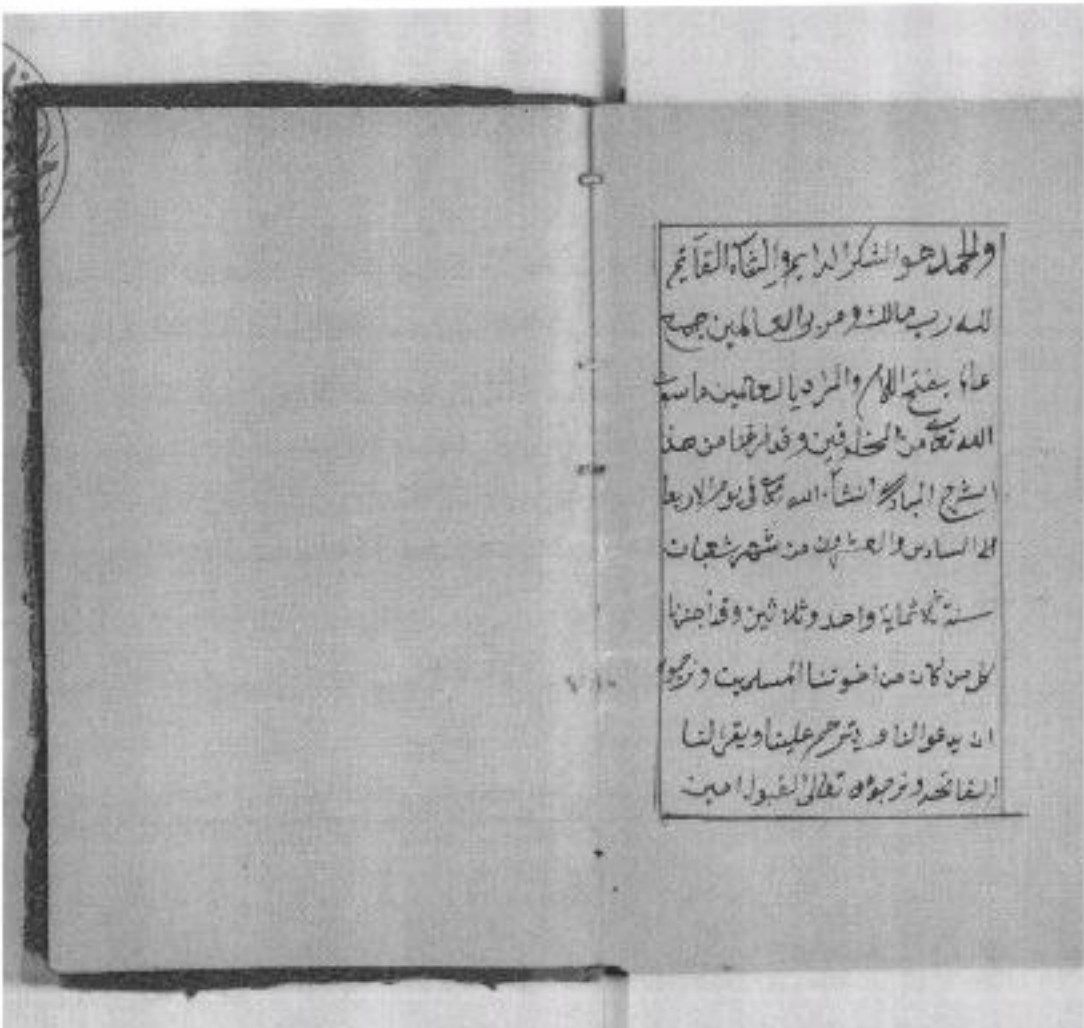 والحمد هو الشكر الدايم والثناء القايم
لله رب مالك ومربى العالمين جميع
عالم بفتح اللام والمراد بالعالمين ما سوى
الله تعالى من المخلوقين وقد فرغنا من هذا
الشرح المبارك انشاء الله تعالى في يوم الاربعا
السادس والعشرون من شهر شعبان
سنة ثلاثماية واحد وثلاثين وقد اجزنا
كل من كان من اخوتنا المسلمين ونرجوا
ان يدعوا لنا و يترحم علينا ويقرا لنا
الفاتحه ونرجوا تعالى القبول امين